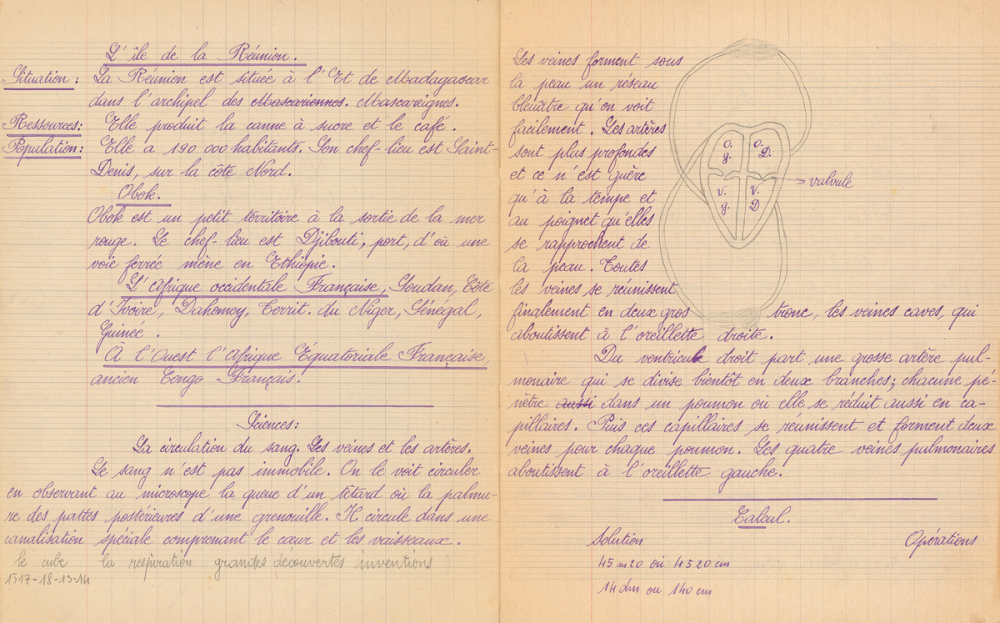 L'île de la Réunion.
Situation : La Réunion est située à l'Est de Madagascar
dans l'archipel des Mascariennes. Mascareignes.
Ressources: Elle produit la canne à sucre et le café.
Population: Elle a 190 000 habitants. Son chef-lieu est Saint-
Denis, sur la côte Nord.
Obok.
Obok est un petit territoire à la sortie de la mer
rouge. Le chef-lieu est Djibouti, port, d'où une
voie ferrée mène en Ethiopie.
L'Afrique occidentale Française, Soudan, Côte
d'Ivoire, Dahomey, Territ. du Niger, Sénégal,
Guinée.
À l'Ouest l'Afrique Equatoriale Française,
ancien Congo Français.
Sciences:
La circulation du sang. Les veines et les artères.
Le sang n'est pas immobile. On le voit circuler
en observant au microscope la queue d'un têtard où la palmu-
re des pattes postérieures d'une grenouille. Il circule dans une
canalisation spéciale comprenant le cœur et les vaisseaux.
le cube la respiration grandes découvertes inventions
1717-18-13-14
Les veines forment sous
la peau un réseau
bleuâtre qu'on voit
facilement. Les artères
sont plus profondes
et ce n'est guère
qu'à la tempe et
au poignet qu'elles
se rapprochent de
la peau. Toutes
les veines se reunissent
finalement en deux gros tronc, les veines caves, qui
aboutissent à l'oreillette droite.
O. g.
O. D.
V. g.
V. D
valvule
Du ventricule droit part une grosse artère pul-
monaire qui se divise bientôt en deux branches; chacune pé-
nètre aussi dans un poumon où elle se réduit aussi en ca-
pillaires. Puis ces capillaires se reunissent et forment deux
veines pour chaque poumon. Les quatre veines pulmonaires
aboutissent à l'oreillette gauche.
Calcul.
Solution Opérations
45 m 20 ou 45 20 cm
14 dm ou 140 cm